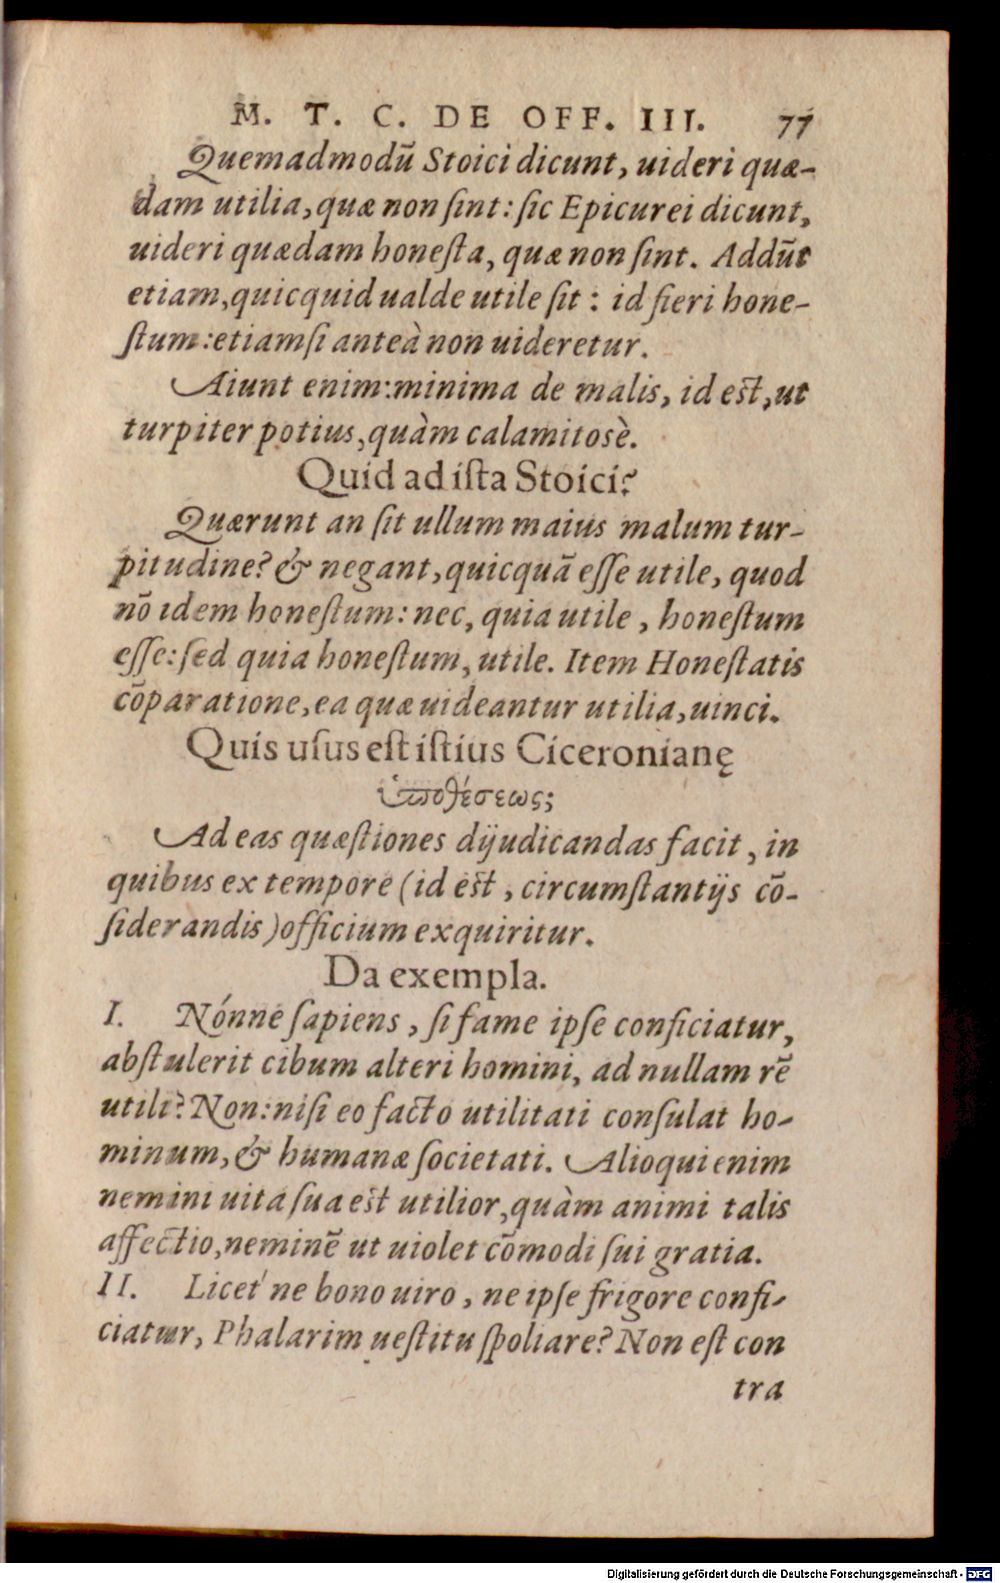 M. T. C. DE OFF. III. 77
Quemadmodū Stoici dicunt, uideri quæ-
dam utilia, quæ non ſint: ſic Epicurei dicunt,
uideri quædam honeſta, quæ non ſint. Addūt
etiam, quicquid ualde utile ſit: id fieri hone-
ſtum: etiamſi anteà non uideretur.
Aiunt enim: minima de malis, id est, ut
turpiter potius, quàm calamitosè.
Quid ad iſta Stoici?
Quærunt an ſit ullum maius malum tur-
pitudine? & negant, quicquā eſſe utile, quod
nō idem honeſtum: nec, quia utile, honeſtum
eſſe: ſed quia honeſtum, utile. Item Honeſtatis
cōparatione, ea quæ uideantur utilia, uinci.
Quis uſus eſt iſtius Ciceronianę
ὑποθέσεως;
Ad eas quæſtiones dijudicandas facit, in
quibus ex tempore (id est, circumſtantijs cō-
ſiderandis) officium exquiritur.
Da exempla.
I. Nónne ſapiens, ſi fame ipſe conficiatur,
abſtulerit cibum alteri homini, ad nullam rē
utili? Non: niſi eo facto utilitati conſulat ho-
minum, & humanæ ſocietati. Alioqui enim
nemini uita ſua est utilior, quàm animi talis
affectio, neminē ut uiolet cōmodi ſui gratia.
II. Licet'ne bono uiro, ne ipſe frigore confi-
ciatur, Phalarim ueſtitu ſpoliare? Non eſt con
tra
Digitalisierung gefördert durch die Deutsche Forschungsgemeinschaft - DFG